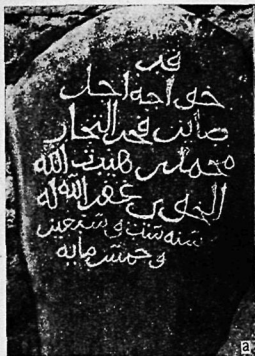 قبر
خواجه اجل
صاین فخر التجار
محمد بن هيبت الله
الخوی غفر الله له
سنه ست و سبعین
و خمسمایه
a